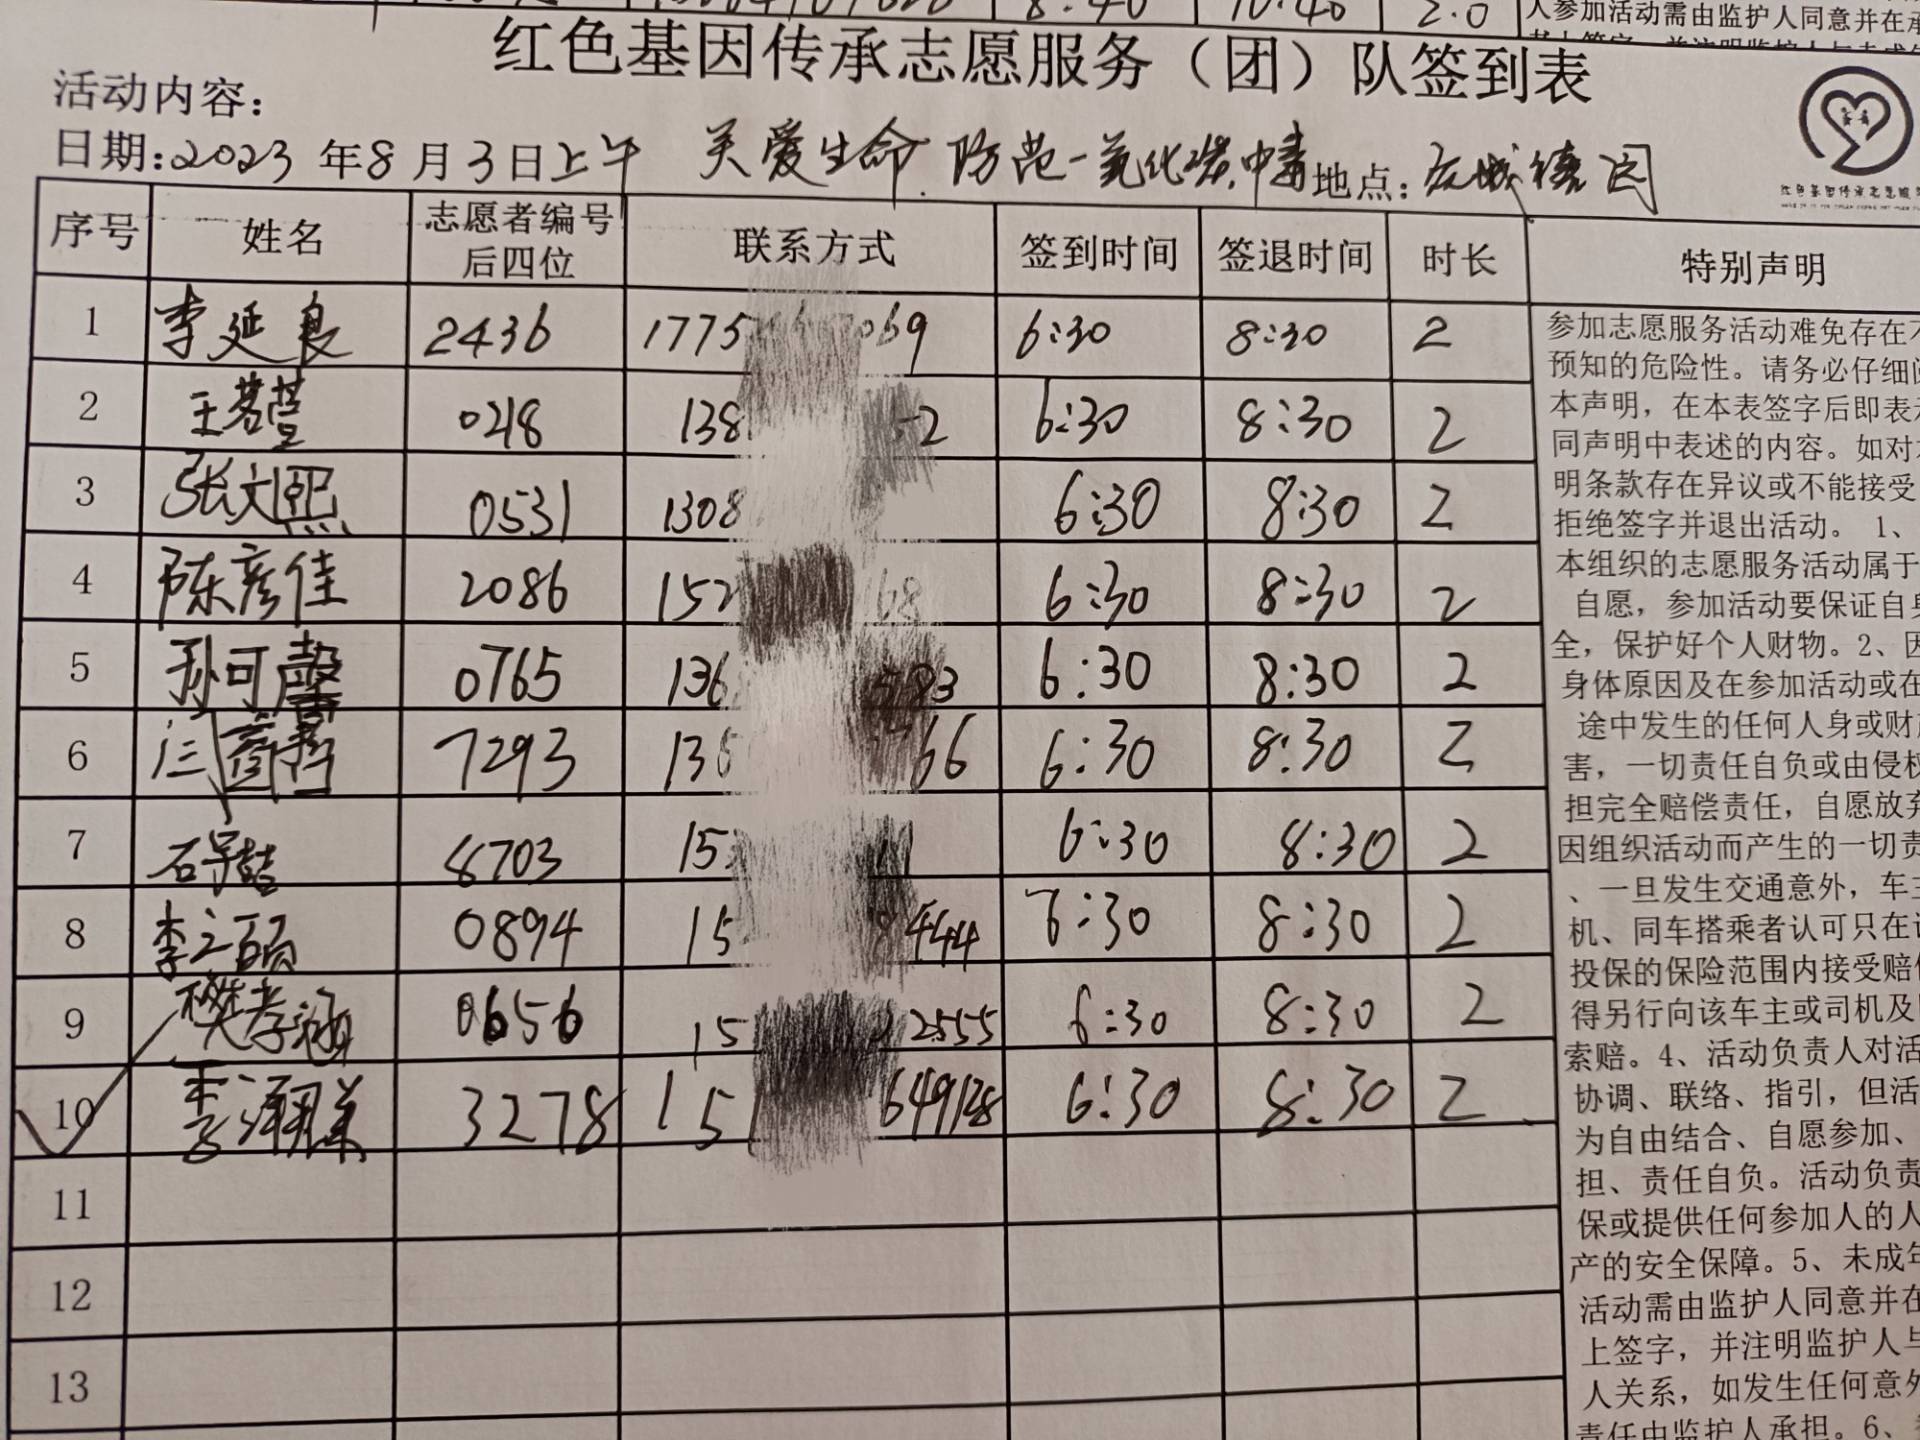 8:40 10:40 2.0
人参加活动需由监护人同意并在承
红色基因传承志愿服务（团）队签到表
活动内容：
日期:2023年8月3日上午 关爱生命 防范一氧化碳中毒 地点:
序号 姓名 志愿者编号后四位 联系方式 签到时间 签退时间 时长 特别声明
1 李延良 2436 1775 069 6:30 8:30 2
2 王茗萱 0218 138 52 6:30 8:30 2
3 张文熙 0531 1308 6:30 8:30 2
4 陈彦佳 2086 152 68 6:30 8:30 2
5 孙可馨 0765 136 583 6:30 8:30 2
6 7293 135 66 6:30 8:30 2
7 石子喆 8703 15 11 6:30 8:30 2
8 李之硕 0894 15 444 6:30 8:30 2
9 樊孝涵 0656 15 2555 6:30 8:30 2
10 3278 15 649128 6:30 8:30 2
11
12
13
参加志愿服务活动难免存在不
预知的危险性。请务必仔细阅
本声明，在本表签字后即表示
同声明中表述的内容。如对本
明条款存在异议或不能接受
拒绝签字并退出活动。 1、
本组织的志愿服务活动属于
自愿，参加活动要保证自身
全，保护好个人财物。2、因
身体原因及在参加活动或在
途中发生的任何人身或财产
害，一切责任自负或由侵权
担完全赔偿责任，自愿放弃
因组织活动而产生的一切责
、一旦发生交通意外，车主
机、同车搭乘者认可只在该
投保的保险范围内接受赔偿
得另行向该车主或司机及
索赔。4、活动负责人对活
协调、联络、指引，但活
为自由结合、自愿参加、
担、责任自负。活动负责
保或提供任何参加人的人
产的安全保障。5、未成年
活动需由监护人同意并在
上签字，并注明监护人与
人关系，如发生任何意外
责任由监护人承担。6、